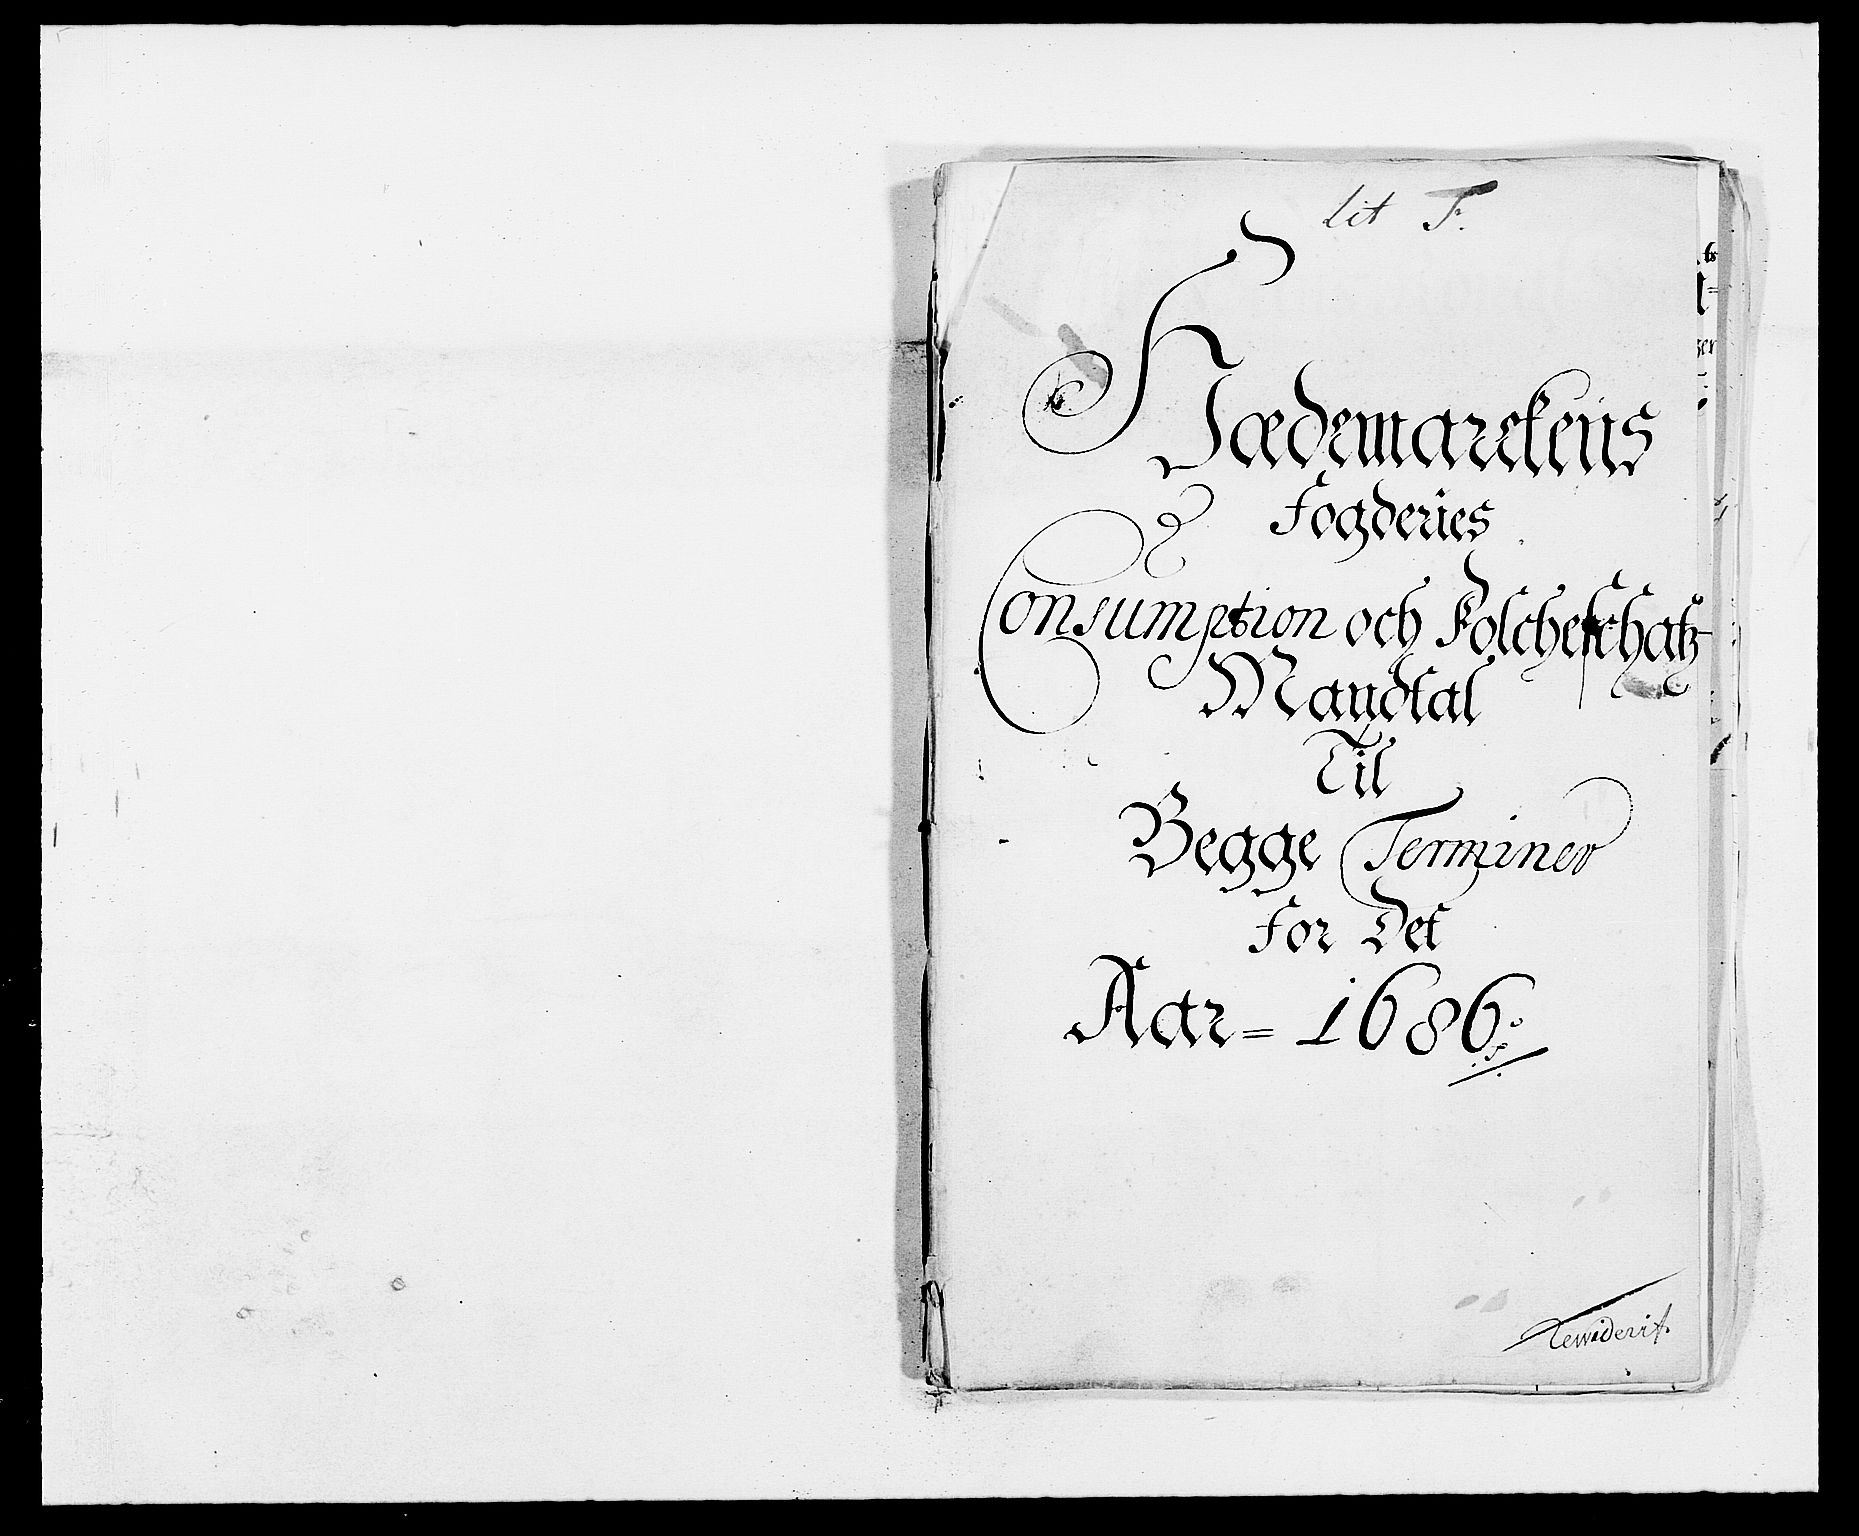 Lit F.
Hædemarckens
Fogderies
Consumption och Folcheschatz
Mandtal
Til
Begge Terminer
For Det
Aar = 1686
Rewiderit.